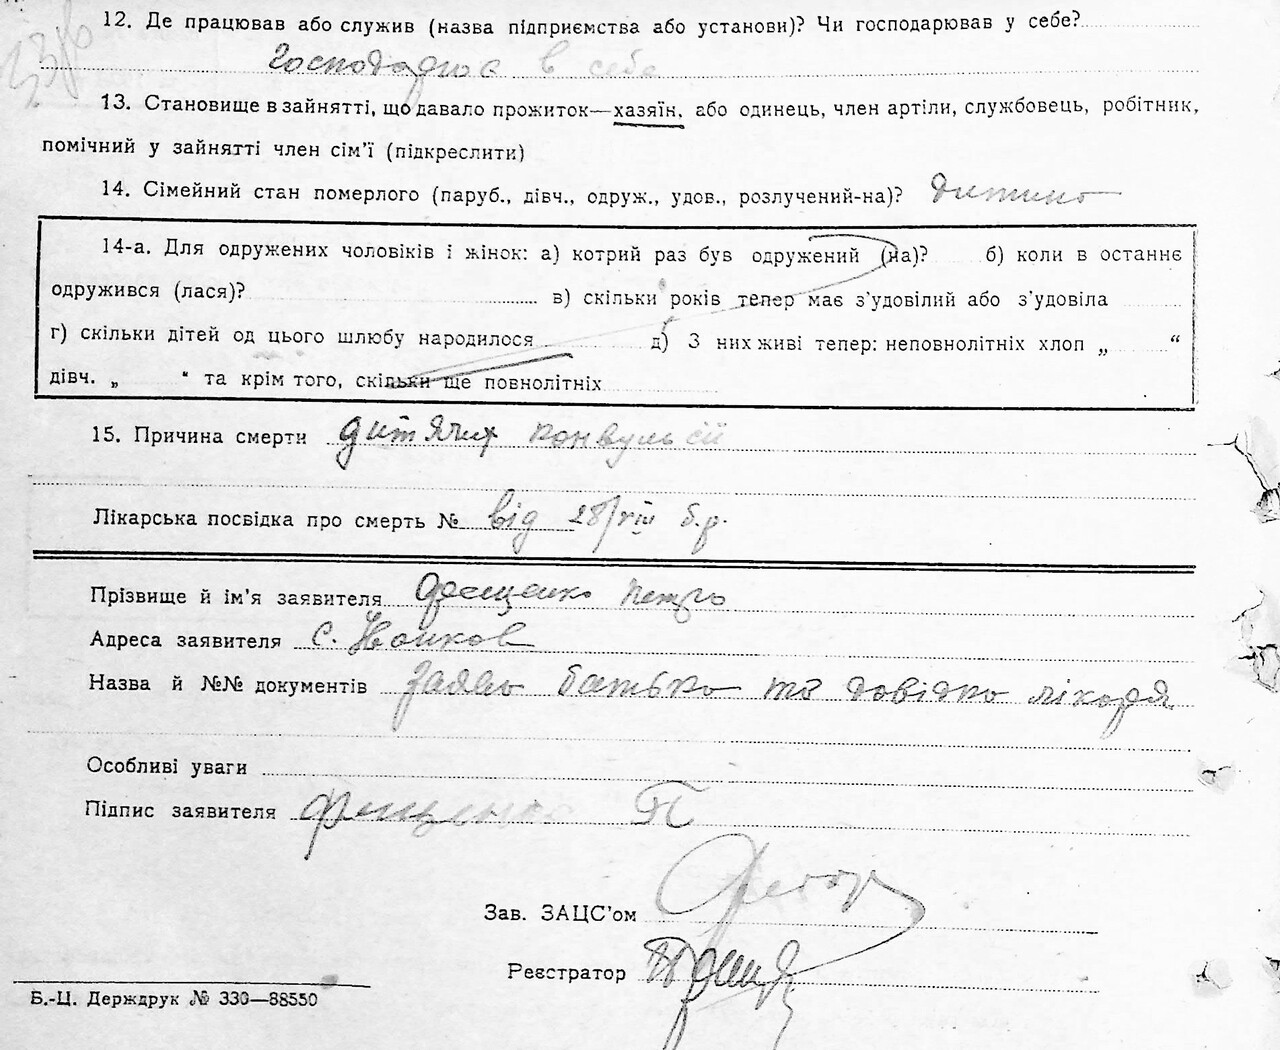 12. Де працював або служив (назва підприємства або установи)? Чи господарював у себе?
господарює в себе
13. Становище в зайнятті, що давало прожиток—хазяїн, або одинець, член артіли, службовець, робітник,
помічний у зайнятті член сім'ї (підкреслити)
14. Сімейний стан померлого (паруб., дівч., одруж., удов., розлучений-на)? дитина
14-а. Для одружених чоловіків і жінок: а) котрий раз був одружений (на)? б) коли в останнє
одружився (лася)? в) скільки років тепер має з'удовілий або з'удовіла
г) скільки дітей од цього шлюбу народилося д) З них живі тепер: неповнолітніх хлоп „ “
дівч. „ “ та крім того, скільки ще повнолітніх
15. Причина смерти дитячих конвульсій
Лікарська посвідка про смерть № від 28/VIII б.р.
Прізвище й ім'я заявителя Фещенко Петро
Адреса заявителя с.
Назва й №№ документів заява батька та довідка лікаря
Особливі уваги
Підпис заявителя Фещенко П
Зав. ЗАЦС'ом
Реєстратор
Б.-Ц. Держдрук № 330—88550